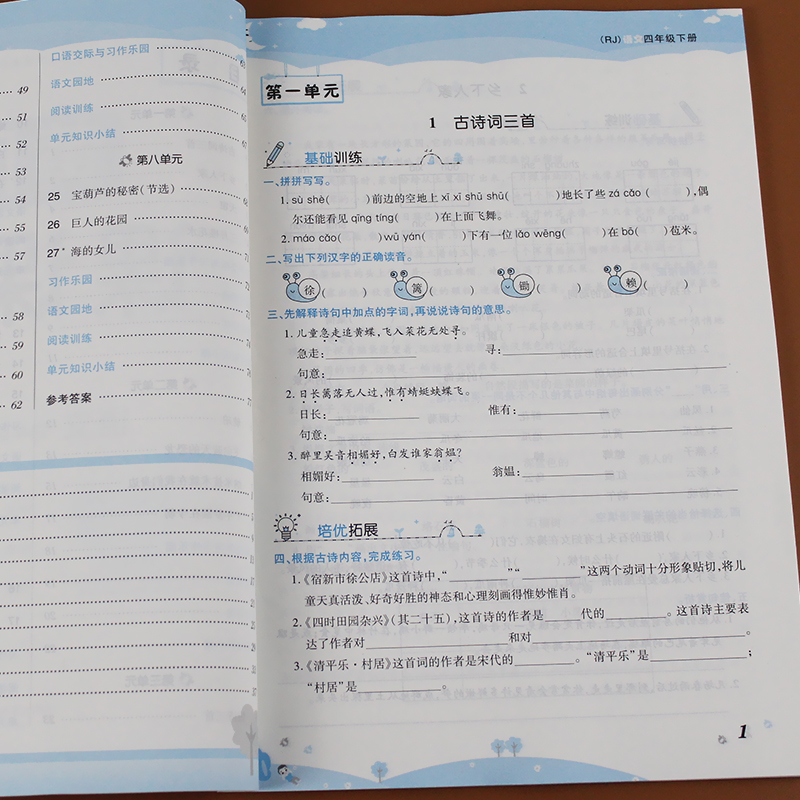 口语交际与习作乐园
语文园地 64
阅读训练
单元知识小结 67
第八单元
25 宝葫芦的秘密(节选)
26 巨人的花园
27* 海的女儿
习作乐园
语文园地
阅读训练
单元知识小结
参考答案
49
51
52
53
54
55
57
58
59
60
62
(RJ) 语文四年级下册
第一单元
1 古诗词三首
基础训练
一、拼拼写写。
1. sù shè( )前边的空地上 xī xī shū shū( )地长了些 zá cǎo ( ),偶
尔还能看见 qīng tíng( )在上面飞舞。
2. máo cǎo( )wū yán( )下有一位 lǎo wēng( )在 bō( )莲米。
二、写出下列汉字的正确读音。
徐( ) 篱( ) 锄( ) 赖( )
三、先解释诗句中加点的字词,再说说诗句的意思。
1. 儿童急走追黄蝶,飞入菜花无处寻。
急走:__________ 寻:__________
句意:__________
2. 日长篱落无人过,惟有蜻蜓蛱蝶飞。
日长:__________ 惟有:__________
句意:__________
3. 醉里吴音相媚好,白发谁家翁媪?
相媚好:__________ 翁媪:__________
句意:__________
培优拓展
四、根据古诗内容,完成练习。
1.《宿新市徐公店》这首诗中,“________”“________”这两个动词十分形象贴切,将儿
童天真活泼、好奇好胜的神态和心理刻画得惟妙惟肖。
2.《四时田园杂兴》(其二十五),这首诗的作者是______代的________。这首诗主要表
达了作者对__________________和对__________________。
3.《清平乐·村居》这首词的作者是宋代的________。“清平乐”是____________;
“村居”是____________。
1